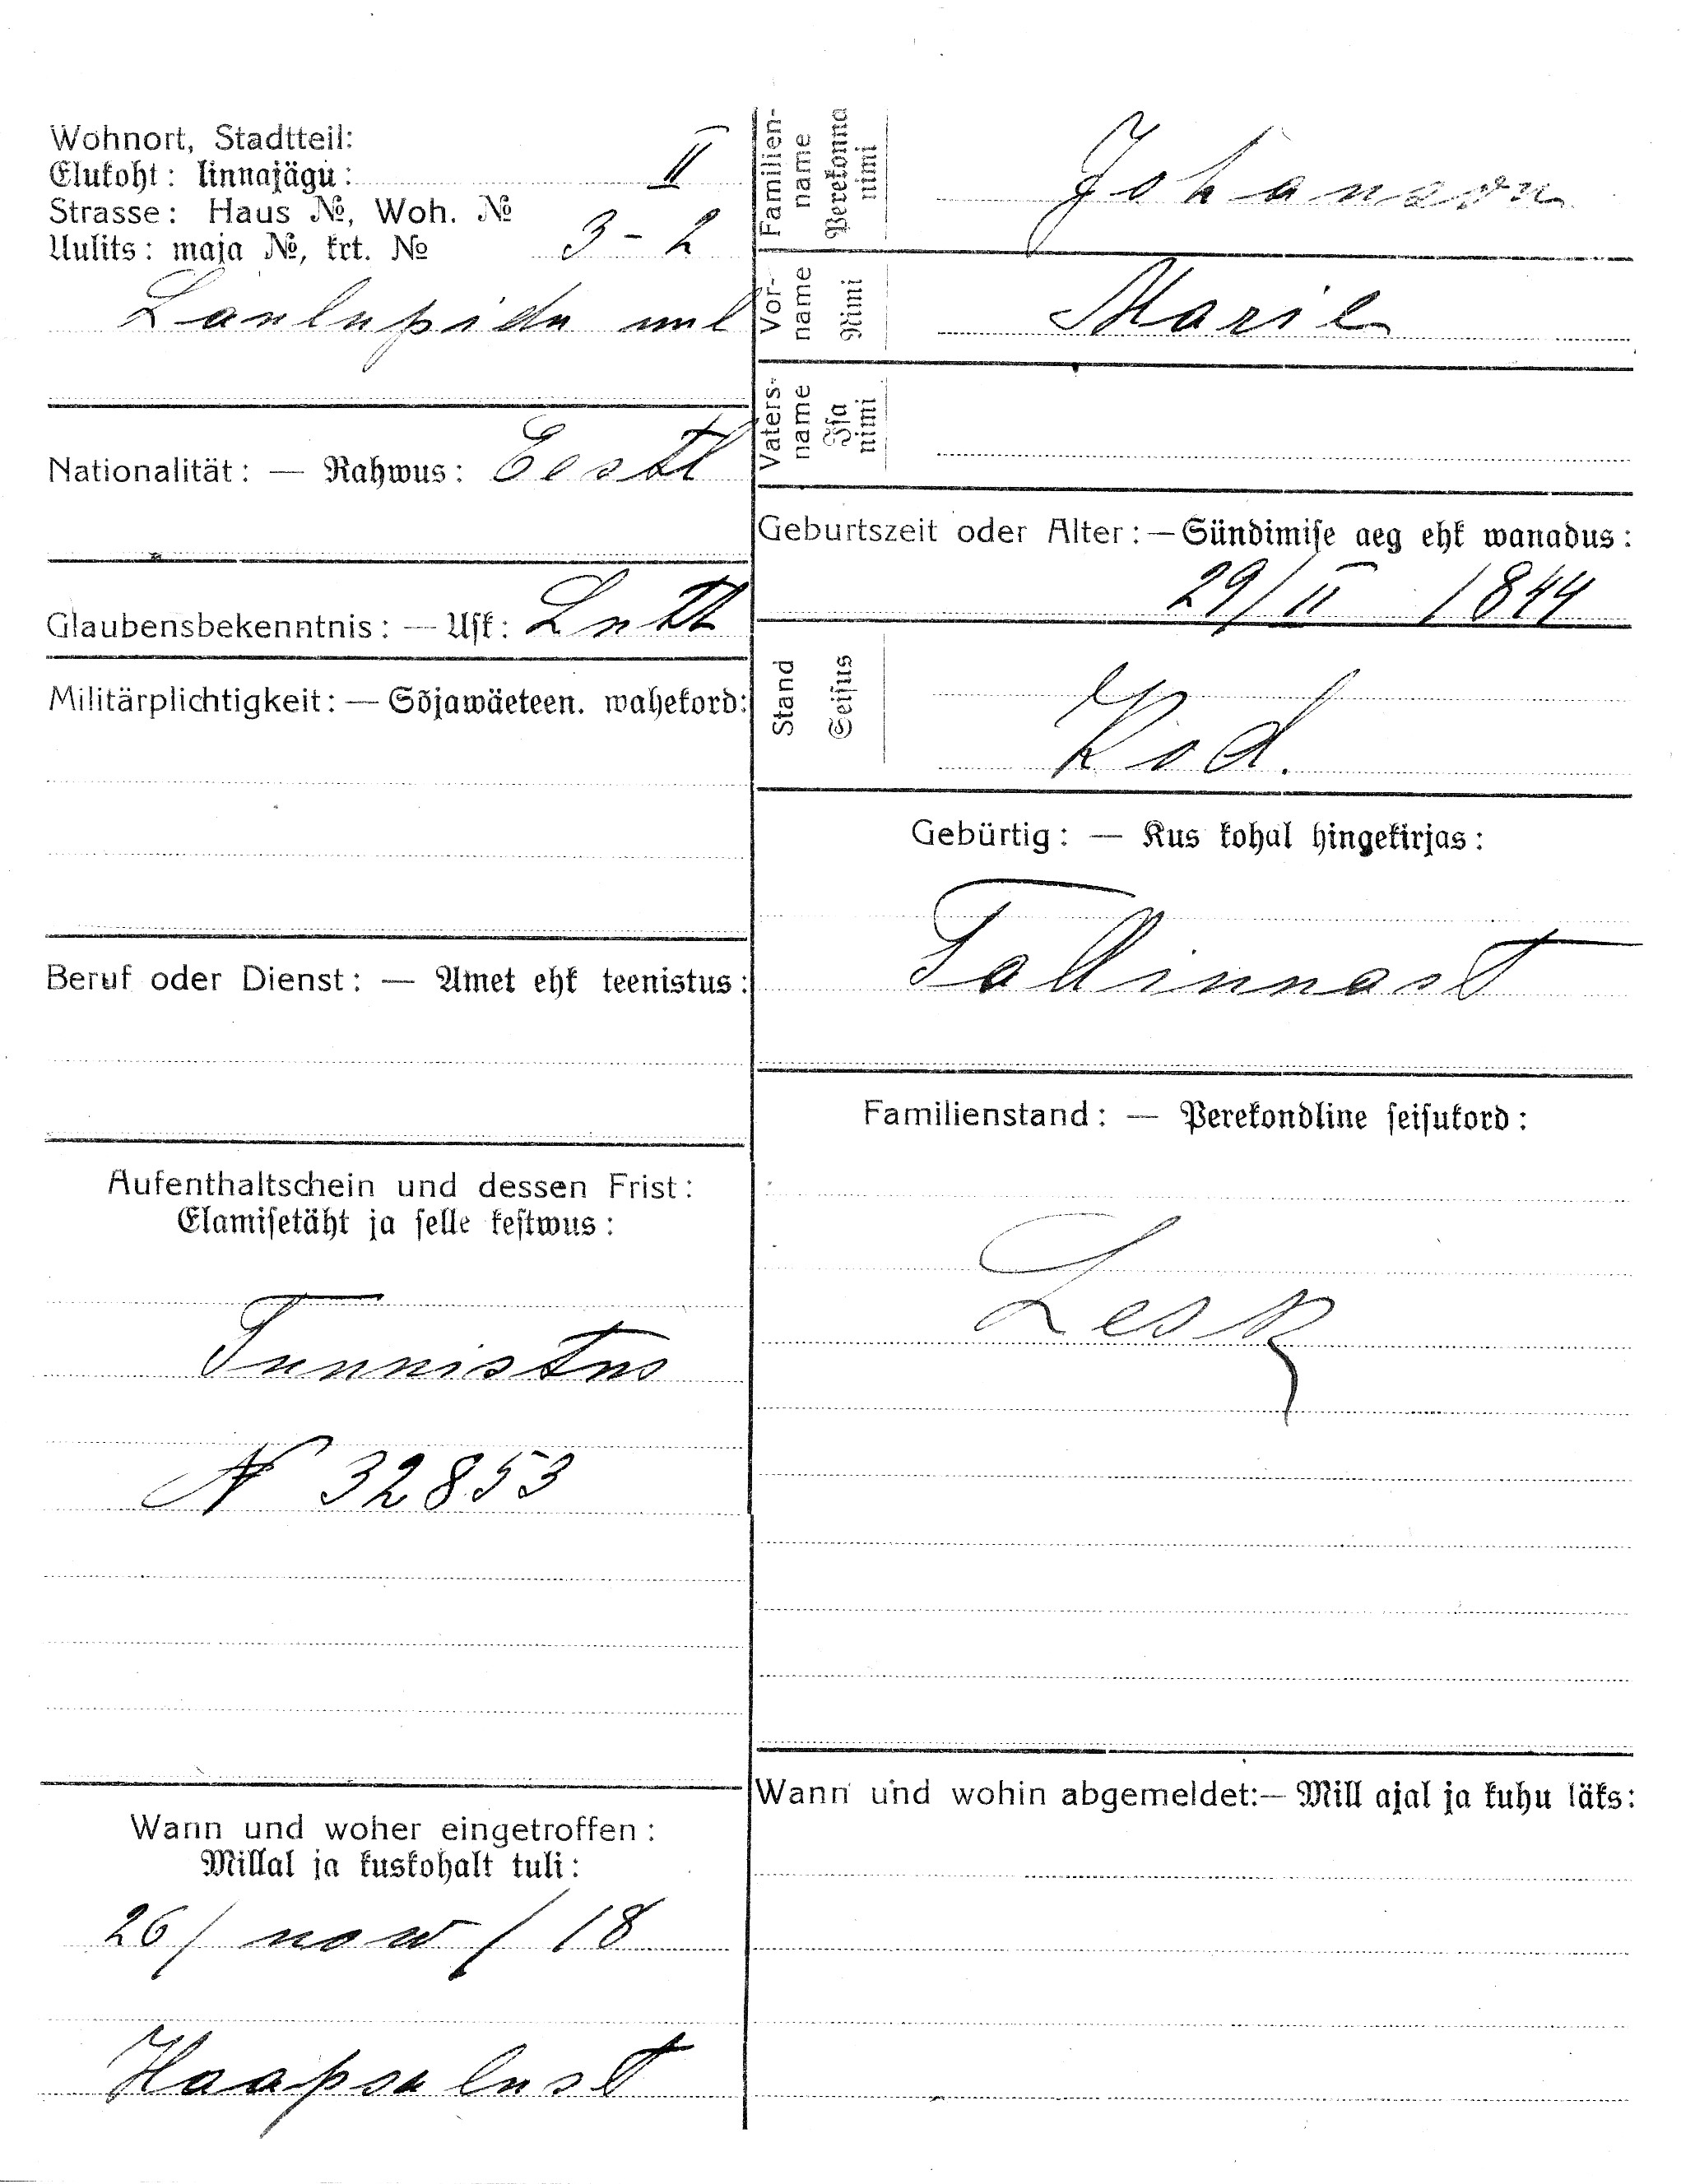 Wohnort, Stadtteil:
Elukoht: linnajägu: II
Strasse: Haus №, Woh. №
Uulits: maja №, krt. № 3 - 2
Laulupidu uul
Nationalität: — Rahwus: Eestl
Glaubensbekenntnis: — Usk: Lutt
Militärplichtigkeit: — Sõjawäeteen. wahekord:
Beruf oder Dienst: — Amet ehk teenistus:
Aufenthaltschein und dessen Frist:
Elamisetäht ja selle kestwus:
Tunnistus
N 32853
Wann und woher eingetroffen:
Millal ja kuskohalt tuli:
26/ now / 18
Haapsalust
Familien-
name
Perekonna
nimi
Johanson
Vor-
name
Nimi
Marie
Vaters-
name
Isa
nimi
Geburtszeit oder Alter: — Sündimise aeg ehk wanadus:
29/II 1844
Stand
Seisus
Kod.
Gebürtig: — Kus kohal hingekirjas:
Tallinnast
Familienstand: — Perekondline seisukord:
Lesk
Wann und wohin abgemeldet:— Mill ajal ja kuhu läks: